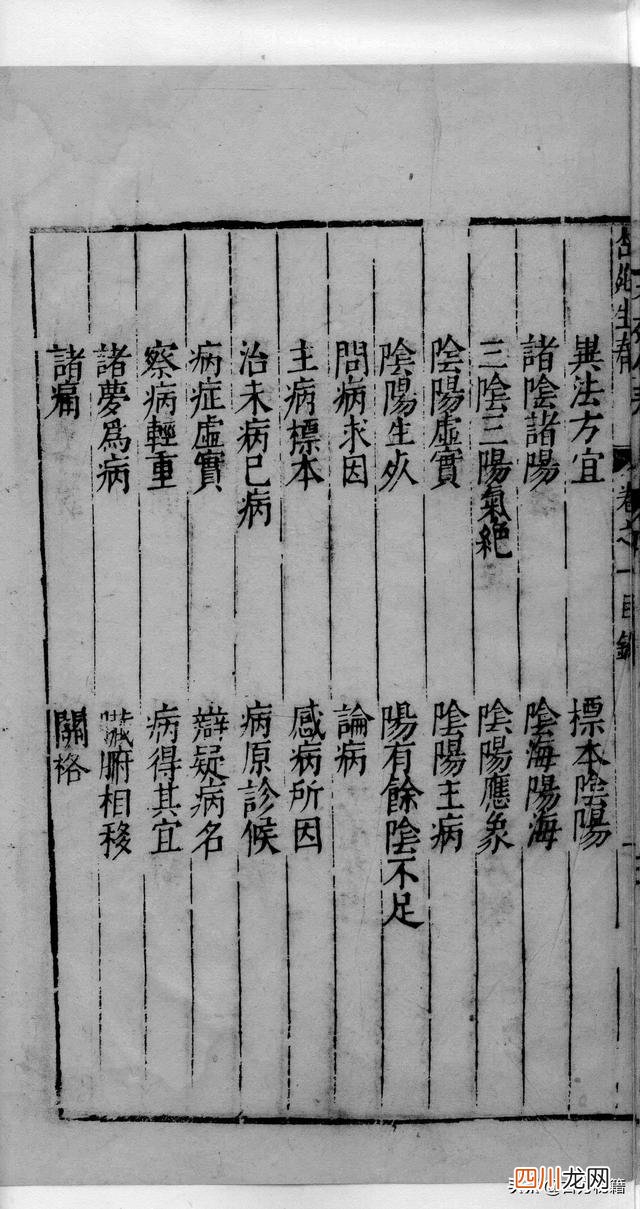 卷之一目錄
異法方宜
標本陰陽
諸陰諸陽
陰海陽海
三陰三陽氣絕
陰陽應象
陰陽虛實
陰陽主病
陰陽生死
陽有餘陰不足
問病求因
論病
主病標本
感病所因
治未病已病
病原診候
病症虛實
辯疑病名
察病輕重
病得其宜
諸夢為病
臟腑相移
諸痛
關格
四川龙网